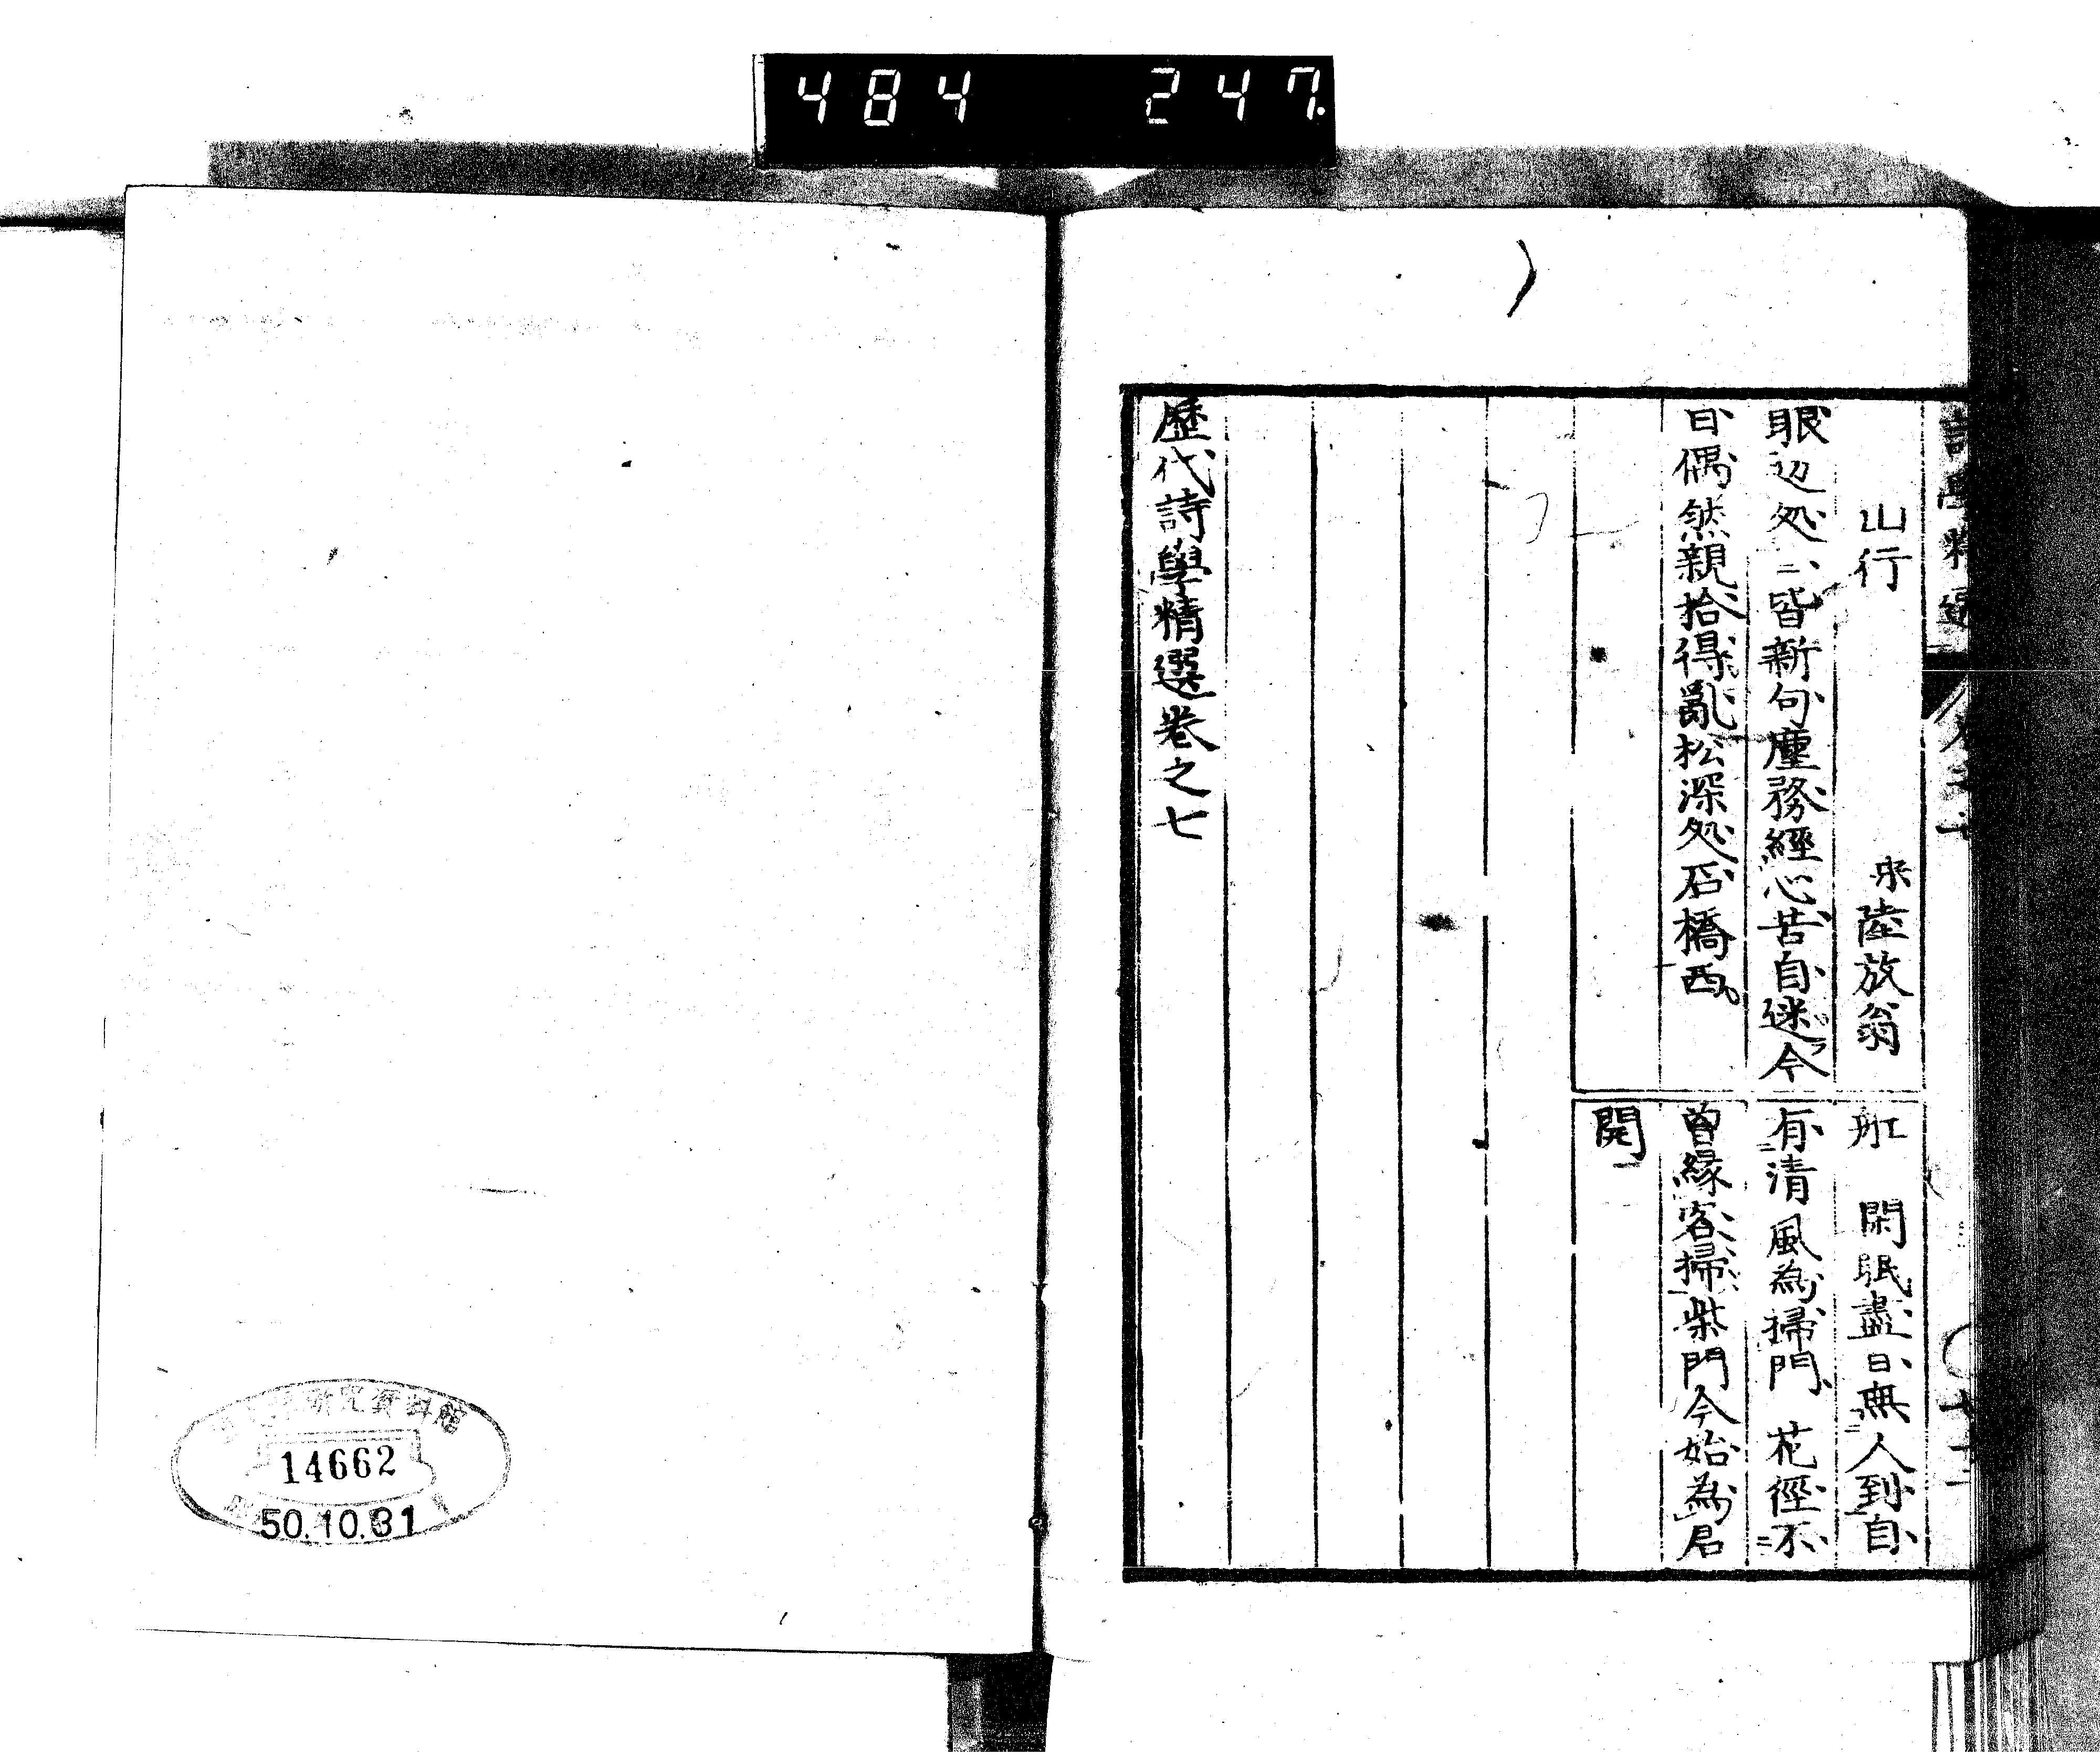 484 247
山行 宋陸放翁
眼辺処〻皆新句塵務經心苦自迷今
日偶然親拾得亂松深処石橋西
舡 閑眠盡日無人到自
有清風為掃門 花徑不
曽緣客掃柴門今始為君
開
歷代詩學精選卷之七
研究資料館
14662
50.10.31